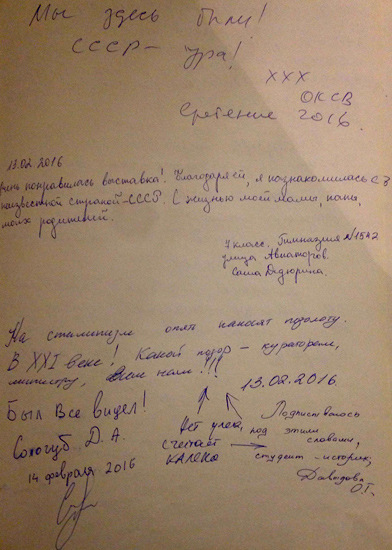 Мы здесь были!
СССР - ура!
XXX
ОКСВ
Сретение 2016.
13.02.2016
понравилась выставка! Благодаря ей, я познакомилась с
неизвестной страной - СССР. С жизнью моей мамы, папы,
моих родителей.
7 класс. Гимназия №1542
улица Авиаторов.
Саша Дедюрина.
На сталинизм опять наносят позолоту.
В XXI веке! Какой позор - кураторам,
министру, всем нам!!!
13.02.2016
Был Все видел!
Сокогуб Д. А.
14 февраля 2016
Нет упека,
считает
КАЛЕКА
Подписываюсь
под этими
словами,
студент-историк,
Давыдова
О.Г.